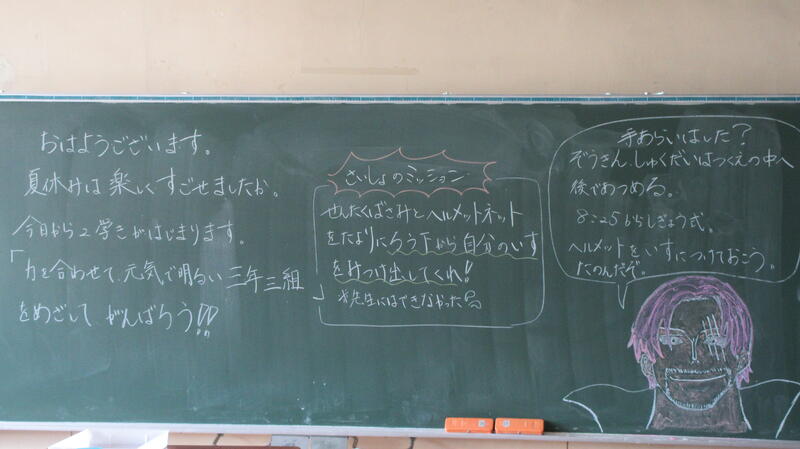 おはようございます。
夏休みは楽しくすごせましたか。
今日から2学きがはじまります。
「力を合わせて、元気で明るい三年三組」
をめざして がんばろう!!
さいしょのミッション
せんたくばさみとヘルメットネット
をたよりにろう下から自分のいす
をみつけ出してくれ!
※先生にはできなかった
手あらいはした?
ぞうきん、しゅくだいはつくえの中へ
後であつめる。
8:25からしぎょう式。
ヘルメットをいすにつけておこう。
たのんだぞ。